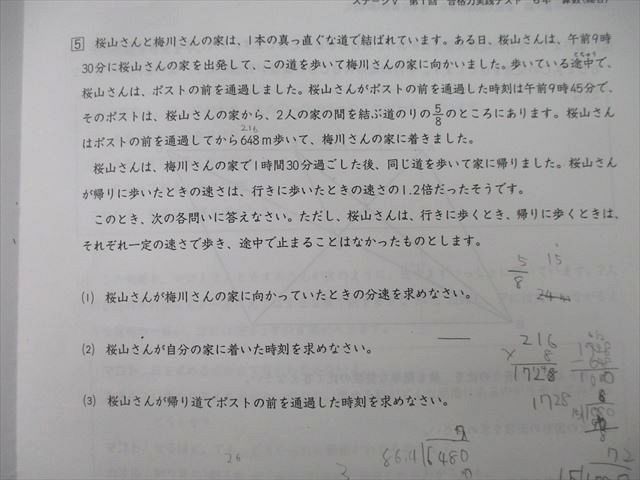 ステージⅤ 第1回 合格力実践テスト 6年 算数(総合)
5 桜山さんと梅川さんの家は、1本の真っ直ぐな道で結ばれています。ある日、桜山さんは、午前9時
30分に桜山さんの家を出発して、この道を歩いて梅川さんの家に向かいました。歩いている途中で、
とちゅう
桜山さんは、ポストの前を通過しました。桜山さんがポストの前を通過した時刻は午前9時45分で、
そのポストは、桜山さんの家から、2人の家の間を結ぶ道のりの5/8のところにあります。桜山さん
216
はポストの前を通過してから648m歩いて、梅川さんの家に着きました。
桜山さんは、梅川さんの家で1時間30分過ごした後、同じ道を歩いて家に帰りました。桜山さん
が帰りに歩いたときの速さは、行きに歩いたときの速さの1.2倍だったそうです。
このとき、次の各問いに答えなさい。ただし、桜山さんは、行きに歩くとき、帰りに歩くときは、
それぞれ一定の速さで歩き、途中で止まることはなかったものとします。
5/8 15
(1) 桜山さんが梅川さんの家に向かっていたときの分速を求めなさい。
216
(2) 桜山さんが自分の家に着いた時刻を求めなさい。
× 8
1728
(3) 桜山さんが帰り道でポストの前を通過した時刻を求めなさい。
1728
26
86.4 6480
72